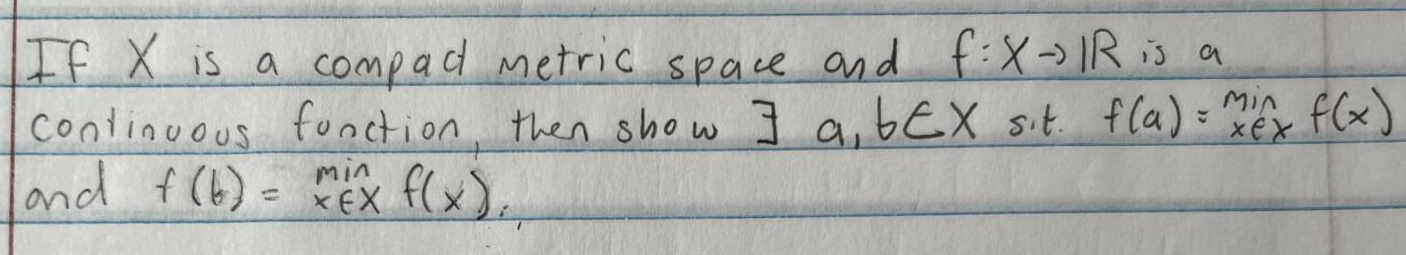 If X is a compact metric space and f:X→ℝ is a
continuous function, then show ∃ a, b∈X s.t. f(a) = min x∈X f(x)
and f(b) = min x∈X f(x).